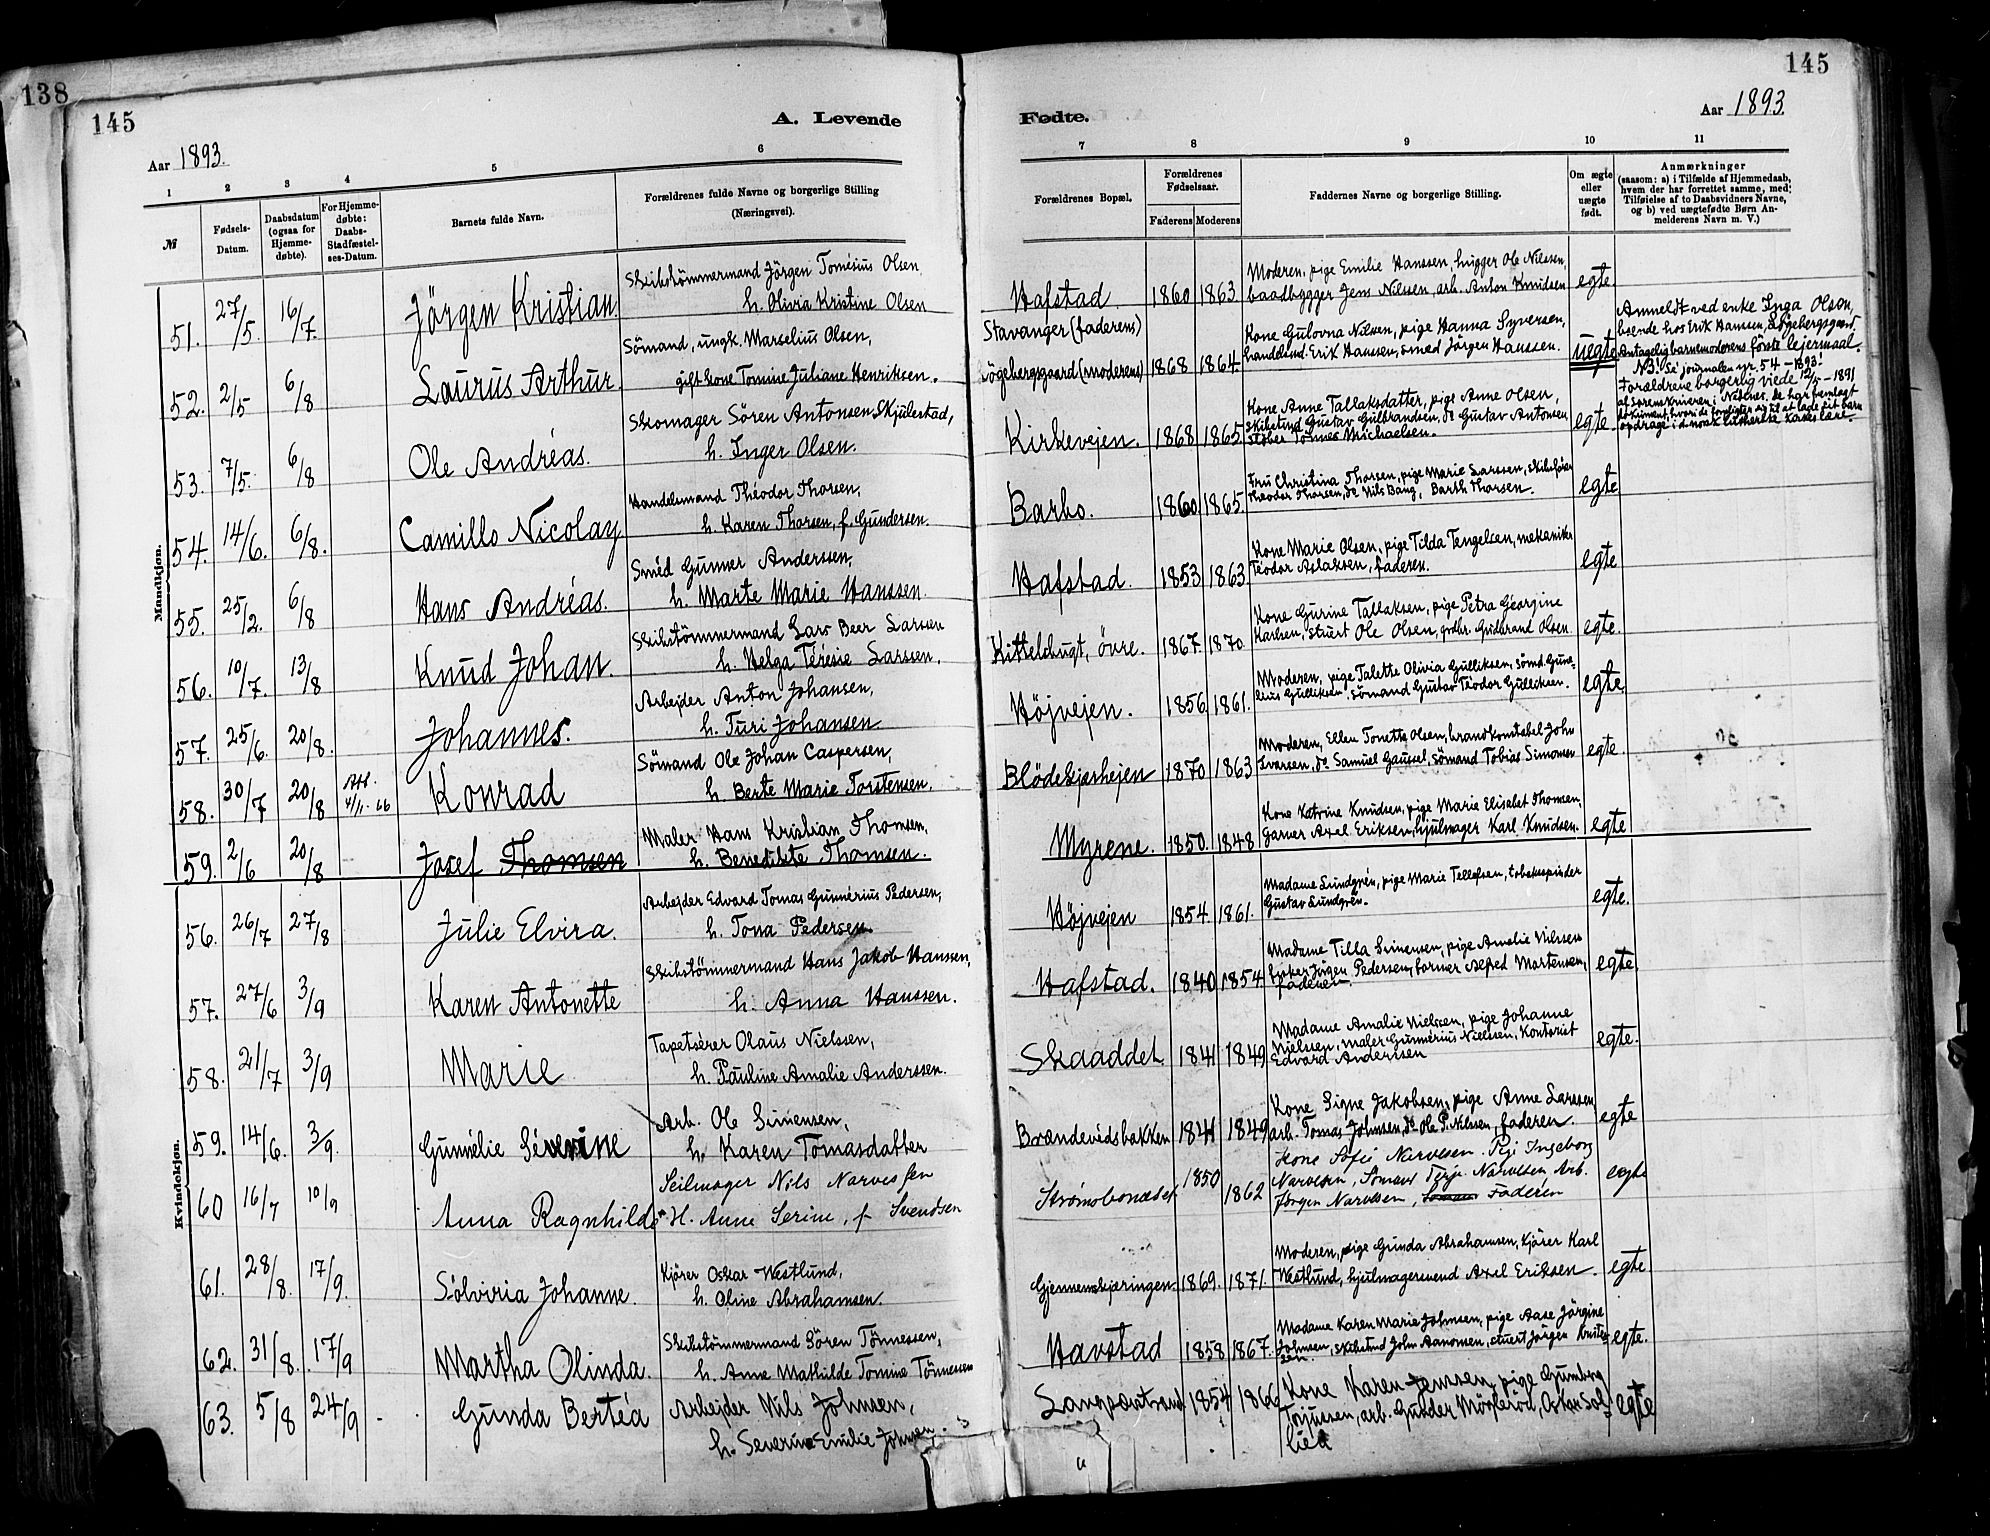 138
145
A. Levende
Aar 1893.
1 2 3 4 5 6
№
Fødsels-Datum.
Daabsdatum (ogsaa for Hjemme-døbte).
For Hjemme-døbte: Daabs-Stadfæstel-ses-Datum.
Barnets fulde Navn.
Forældrenes fulde Navne og borgerlige Stilling (Næringsvei).
Mandkjøn.
51. 27/5. 16/7. Jörgen Kristian.
Skibstömmermand Jörgen Tomésius Olsen,
h. Olivia Kristine Olsen
52. 2/5 6/8 Laurus Arthur.
Sömand, ungk. Marselius Olsen,
gift kone Tomine Juliane Henriksen.
53. 7/5. 6/8 Ole Andréas.
Skomager Sören Antonsen Skjulestad,
h. Inger Olsen.
54. 14/6. 6/8. Camillo Nicolay
Handelsmand Théodor Thorsen,
h. Karen Thorsen, f. Gundersen.
55. 25/2. 6/8 Hans Andréas.
Sméd Gunner Anderssen,
h. Marte Marie Hanssen.
56. 10/7. 13/8 Knud Johan.
Skibstömmermand Lars Beer Larssen
h. Helga Térésie Larssen,
57. 25/6. 20/8. Johannes.
Arbejder Anton Johansen,
h. Turi Johansen
58. 30/7 20/8 4/11. 66 Konrad
Sömand Ole Johan Caspersen,
h. Berte Marie Torstensen.
59. 2/6 20/8 Josef Thomsen
Maler Hans Kristian Thomsen,
h. Benedikte Thomsen.
Kvindekjøn.
56. 26/7 27/8 Julie Elvira.
Arbejder Edvard Tomas Gunnérius Pedersen,
h. Tona Pedersen.
57. 27/6 3/9 Karen Antonette
Skibstömmermand Hans Jakob Hanssen,
h. Anna Hanssen.
58. 21/7 3/9 Marie
Tapetsérer Olaus Nielssen,
h. Pauline Amalie Anderssen.
59. 14/6. 3/9. Gunnélie Séverine
Arb. Ole Simensen,
h. Karen Tomasdatter
60 16/7 10/9 Anna Ragnhilde
Seilmager Nils Narvessen
H. Anne Serine, f. Svendsen
61. 28/8. 17/9. Sólviria Johanne.
Kjörer Oskar Westlund,
h. Oline Abrahamsen.
62. 31/8. 17/9 Martha Olinda.
Skibstömmermand Sören Tönnessen,
h. Anne Mathilde Tomine Tönnessen
63. 5/8 24/9 Gunda Bertéa
Arbejder Nils Johnsen,
h. Severine Emilie Johnsen.
145
Fødte.
Aar 1893.
7 8 9 10 11
Forældrenes Bopæl.
Forældrenes Fødselsaar.
Faderens Moderens
Faddernes Navne og borgerlige Stilling.
Om ægte eller uægte født.
Anmærkninger
(saasom: a) i Tilfælde af Hjemmedaab,
hvem der har forrettet samme, med
Tilføielse af to Daabsvidners Navne,
og b) ved uægtefødte Børn An-
melderens Navn m. V.)
Hafstad 1860 1863
Moderen, pige Emilie Hanssen, hugger Ole Nilssen,
baadbygger Jens Nilssen, arb. Anton Knudsen
egte.
Stavanger (faderens)
Lögebergsgaard (moderens) 1868 1864
Kone Gulovna Nilsen, pige Hanna Syversen,
handelsmd. Erik Hanssen, smed Jörgen Hanssen.
uegte
Anmeldt ved enke Inga Olsen,
boende hos Erik Hanssen, Lögebergsgaard.
Antagelig barnemoderens förste lejermaal.
NB. Se journalen nr. 54 - 1893!
Kirkevejen. 1868 1865.
Kone Anne Tallaksdatter, pige Anne Olsen,
skibstmd Gustav Gulbrandsen, do Gustav Antonsen
stöber Tönnes Michaelsen.
egte.
Forældrene borgerlig viede 12/5 - 1891
af Sorenskriveren i Nedenes, de har fremlagt
dokument, hvori de forpligter sig til at lade sit barn
opdrage i d. norsk lutherske kirkes lære.
Barbo. 1860. 1865.
Fru Christina Thorsen, pige Marie Larssen, skibsförer
Theodor Thorsen, do Nils Bang, Barth Thorsen.
egte
Hafstad. 1853 1863.
Kone Marie Olsen, pige Tilda Tengelsen, mekaniker
Téodor Aslaksen, faderen.
egte
Kittelsbugt, övre. 1867. 1870.
Kone Gurine Tallaksen, pige Petra Géorgine
Karlsen, stuert Ole Olsen, grdbr. Gudbrand Olsen.
egte.
Höjvejen. 1856 1861.
Moderen, pige Talette Olivia Gulliksen, sömd. Gune-
rius Gulliksen, sömand Gustav Téodor Gulliksen.
egte
Blödekjærhejen 1870 1863
Moderen, Ellen Tonette Olsen, brandkonstabel John
Ivarsen, do Samuel Gaussel, Sömand Tobias Simonsen
egte.
Myrene. 1850. 1848
Kone Katrine Knudsen, pige Marie Elisabet Thomsen,
Garver Axel Eriksen, hjulmager Karl Knudsen.
egte
Höjvejen 1854. 1861.
Madame Lundgrén, pige Marie Tellefsen, tobakspinder
Gustav Lundgrén.
egte.
Hafstad. 1840 1854
Madame Tilla Simensen, pige Amalie Nilssen
Jörgen Pedersen, former Alfred Mortensen,
faderen
egte.
Skaaddet. 1841 1849
Madame Amalie Nielssen, pige Johanne
Nielssen, maler Gunnérius Nielssen, Kontorist
Edvard Anderssen
egte.
Brændevidsbakken 1841 1849
Kone Signe Jakobsen, pige Anne Larssen
arb. Tomas Johnsen, do Ole P. Nilssen, faderen.
egte
Strömsbonæset 1850 1862
Kone Sofie Narvesen. Pige Ingeborg
Narvesen, Sömand Terje Narvesen Arb.
Jörgen Narvesen, Faderen
egte
Gjennemskjæringen 1869. 1871.
Moderen, pige Gunda Abrahamsen, Kjörer Karl
Westlund, hjulmagersvend Axel Eriksen.
egte
Havstad 1858 1867.
Madame Karen Marie Johnsen, pige Aase Jörgine
Johnsen, skibstmd John Aanonsen, stuert Jörgen
sen.
egte.
1854 1866
Kone Karen Jenssen, pige Gunborg
arb. Gunder Mörferöd, Oskar Sol-
lied
egte